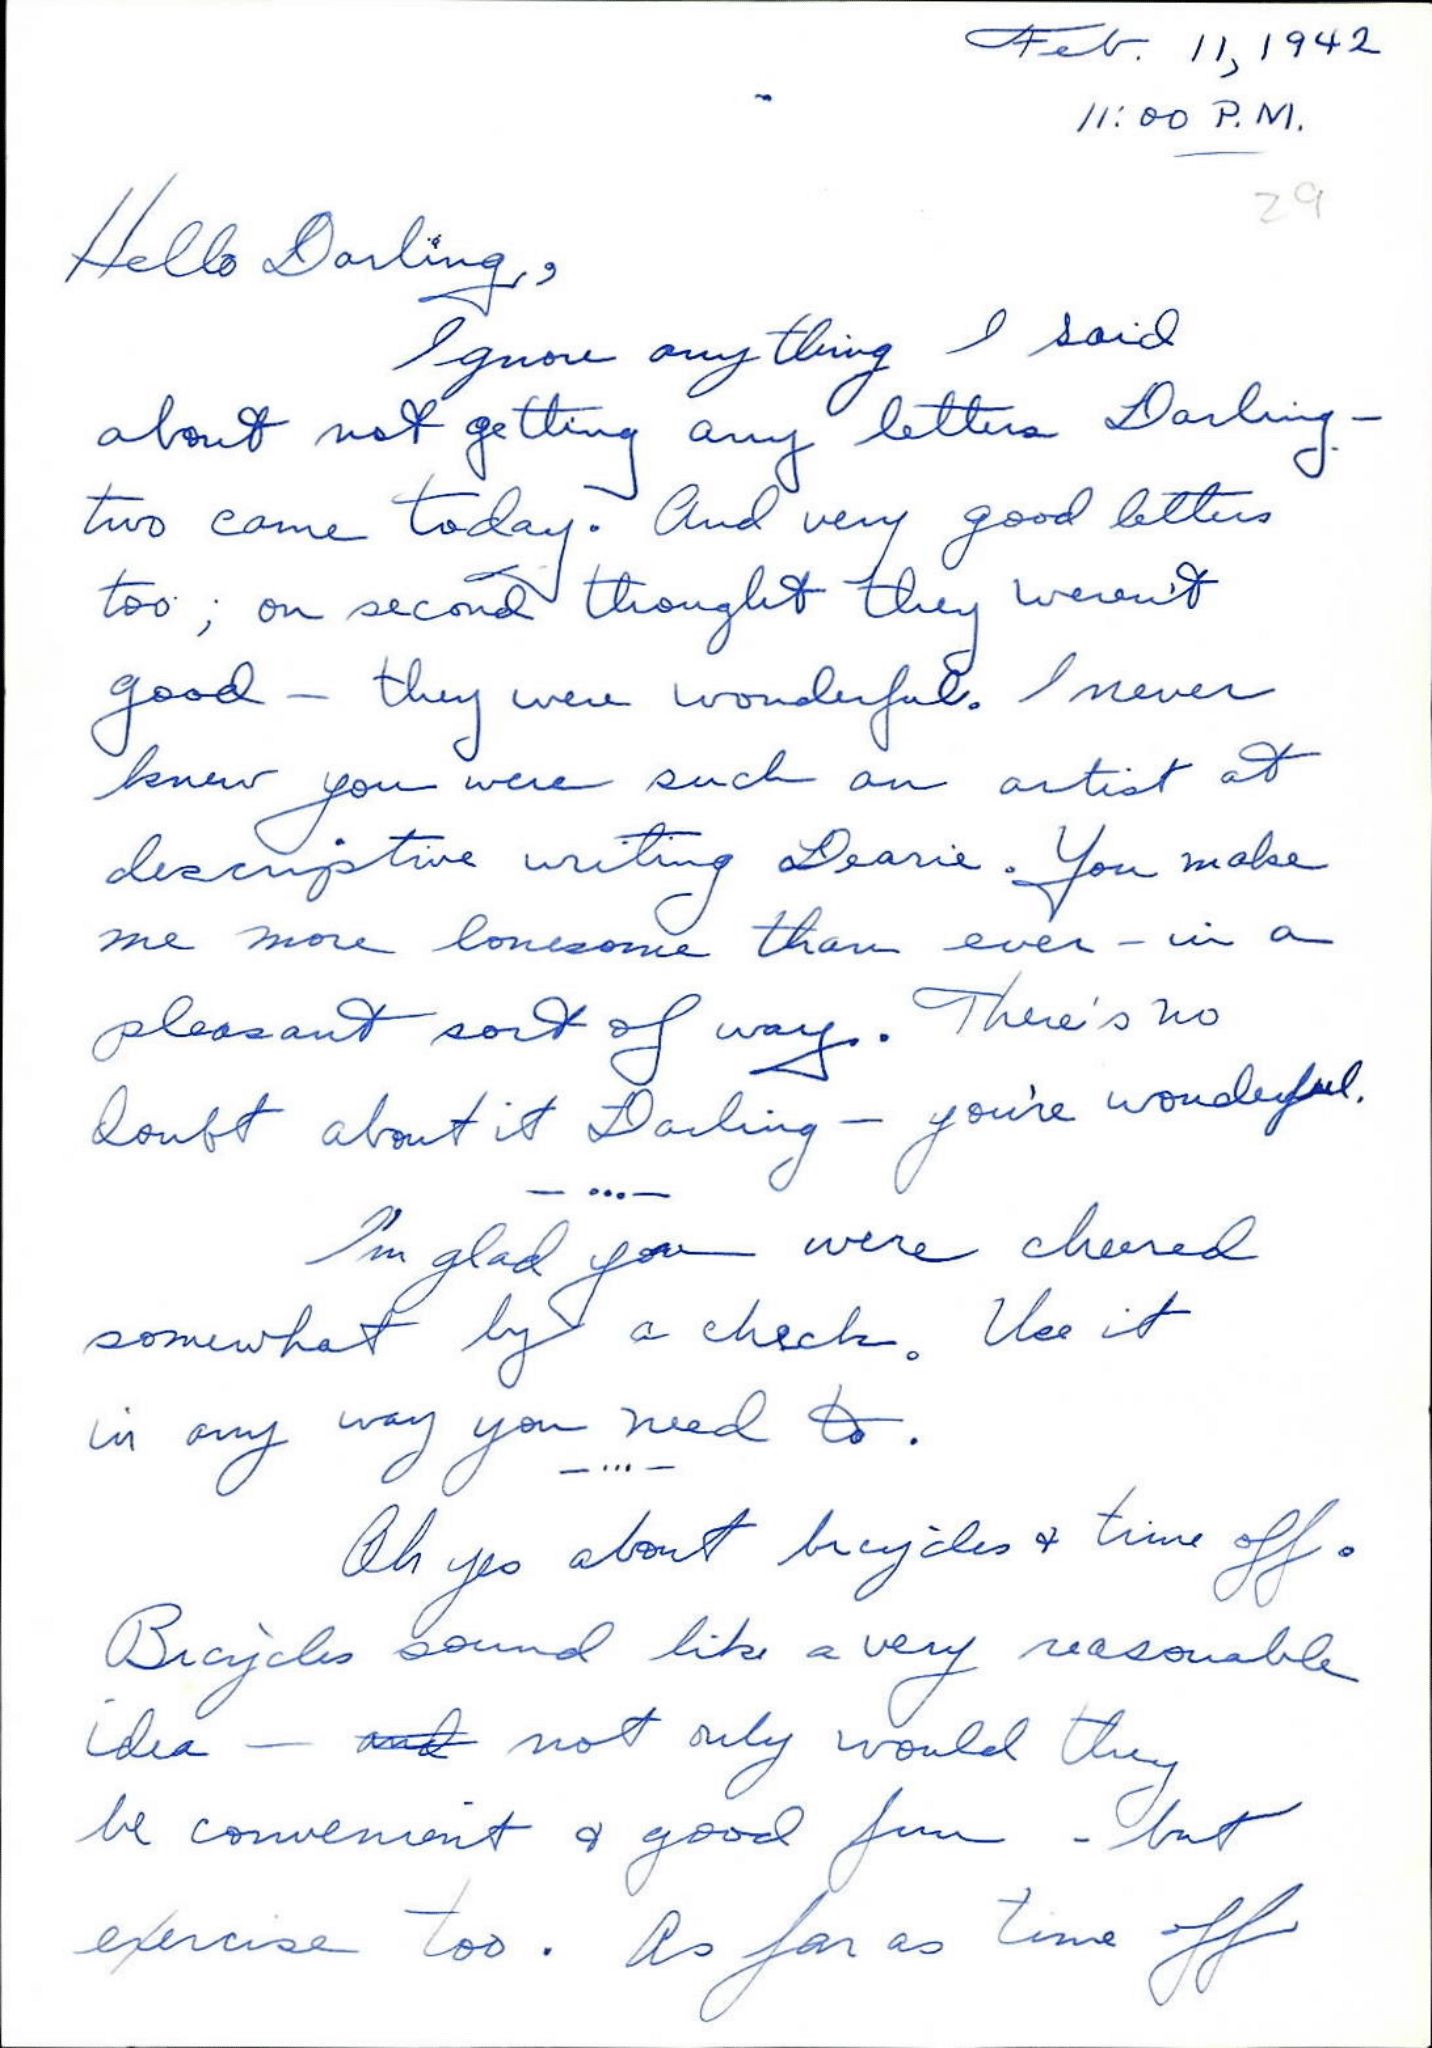 Feb. 11, 1942
11:00 P.M.
29
Hello Darling,
Ignore anything I said
about not getting any letters Darling -
two came today. And very good letters
too; on second thought they weren't
good - they were wonderful. I never
knew you were such an artist at
descriptive writing Dearie. You make
me more lonesome than ever - in a
pleasant sort of way. There's no
doubt about it Darling - you're wonderful.
— ... —
I'm glad you were cheered
somewhat by a check. Use it
in any way you need to.
— ... —
Oh yes about bicycles & time off.
Bicycles sound like a very reasonable
idea — and not only would they
be convenient & good fun - but
exercise too. As far as time off